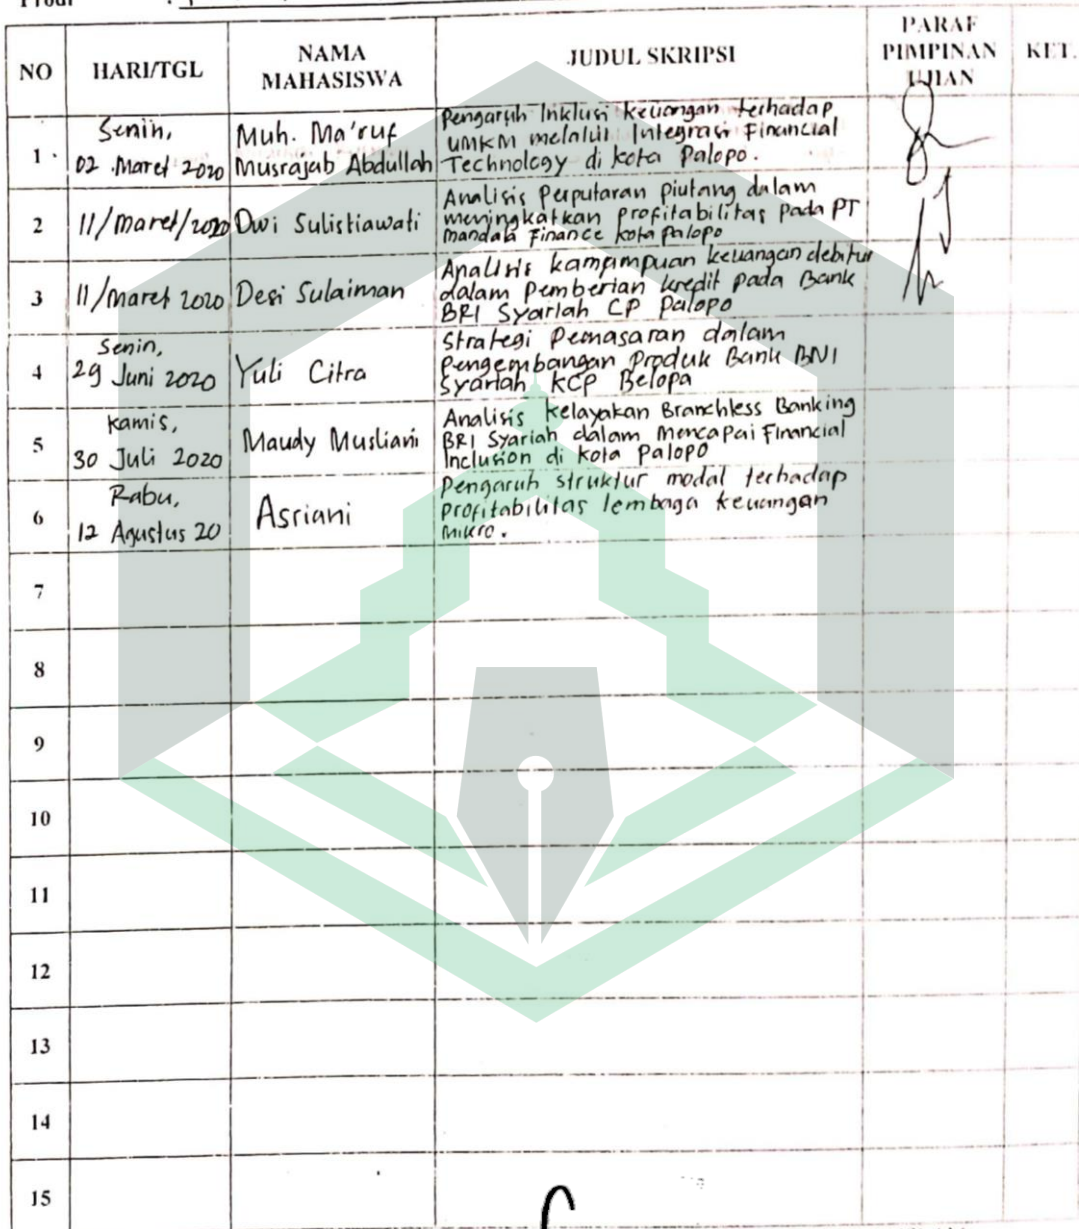 Prodi :
NO
HARI/TGL
NAMA
MAHASISWA
JUDUL SKRIPSI
PARAF
PIMPINAN
UJIAN
KET.
1.
Senin,
02 Maret 2020
Muh. Ma'ruf
Musrajab Abdullah
Pengaruh Inklusi keuangan terhadap
UMKM melalui Integrasi Financial
Technology di kota Palopo.
2
11/Maret/2020
Dwi Sulistiawati
Analisis Perputaran piutang dalam
meningkatkan profitabilitas pada PT
mandala Finance kota palopo
3
11/Maret 2020
Desi Sulaiman
Analisis kamampuan keuangan debitur
dalam Pemberian kredit pada Bank
BRI Syariah CP Palopo
4
Senin,
29 Juni 2020
Yuli Citra
Strategi Pemasaran dalam
Pengembangan Produk Bank BNI
Syariah KCP Belopa
5
Kamis,
30 Juli 2020
Maudy Musliani
Analisis Kelayakan Branchless Banking
BRI Syariah dalam Mencapai Financial
Inclusion di Kota Palopo
6
Rabu,
12 Agustus 20
Asriani
Pengaruh struktur modal terhadap
Profitabilitas lembaga keuangan
Mikro.
7
8
9
10
11
12
13
14
15